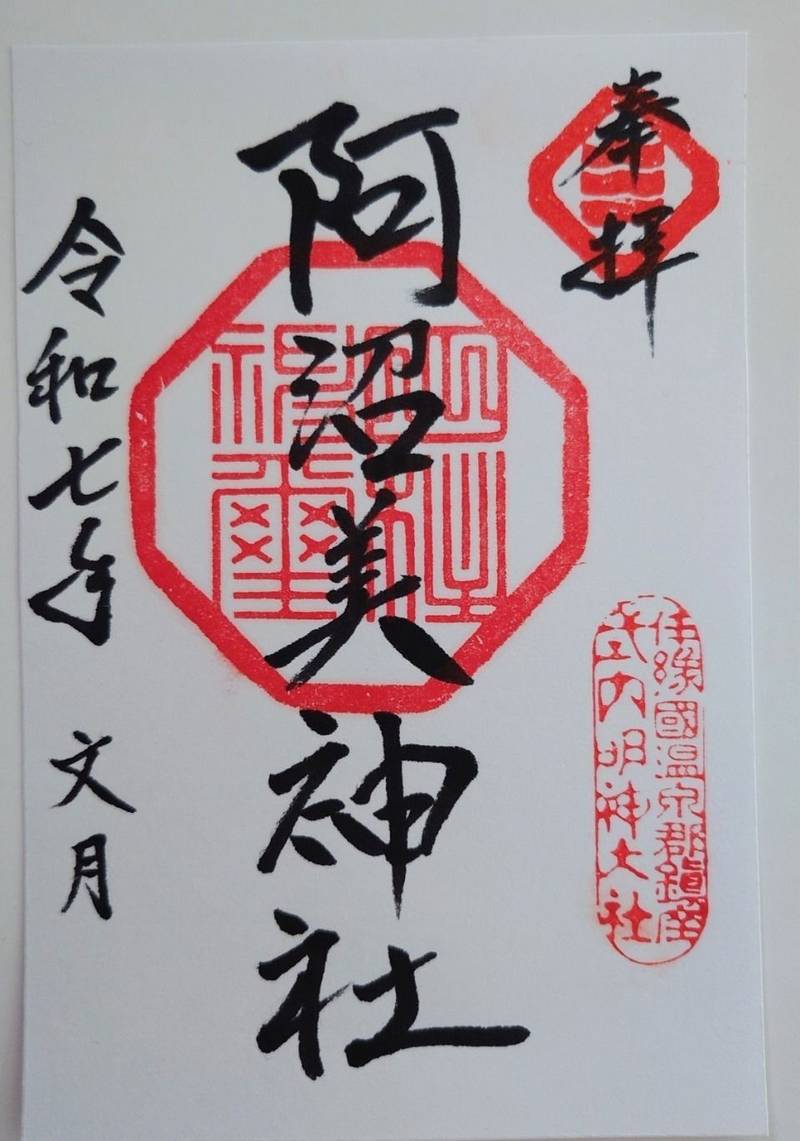 奉拝
伊豫國温泉郡鎮座
式内明神大社
阿沼美神社
令和七年 文月